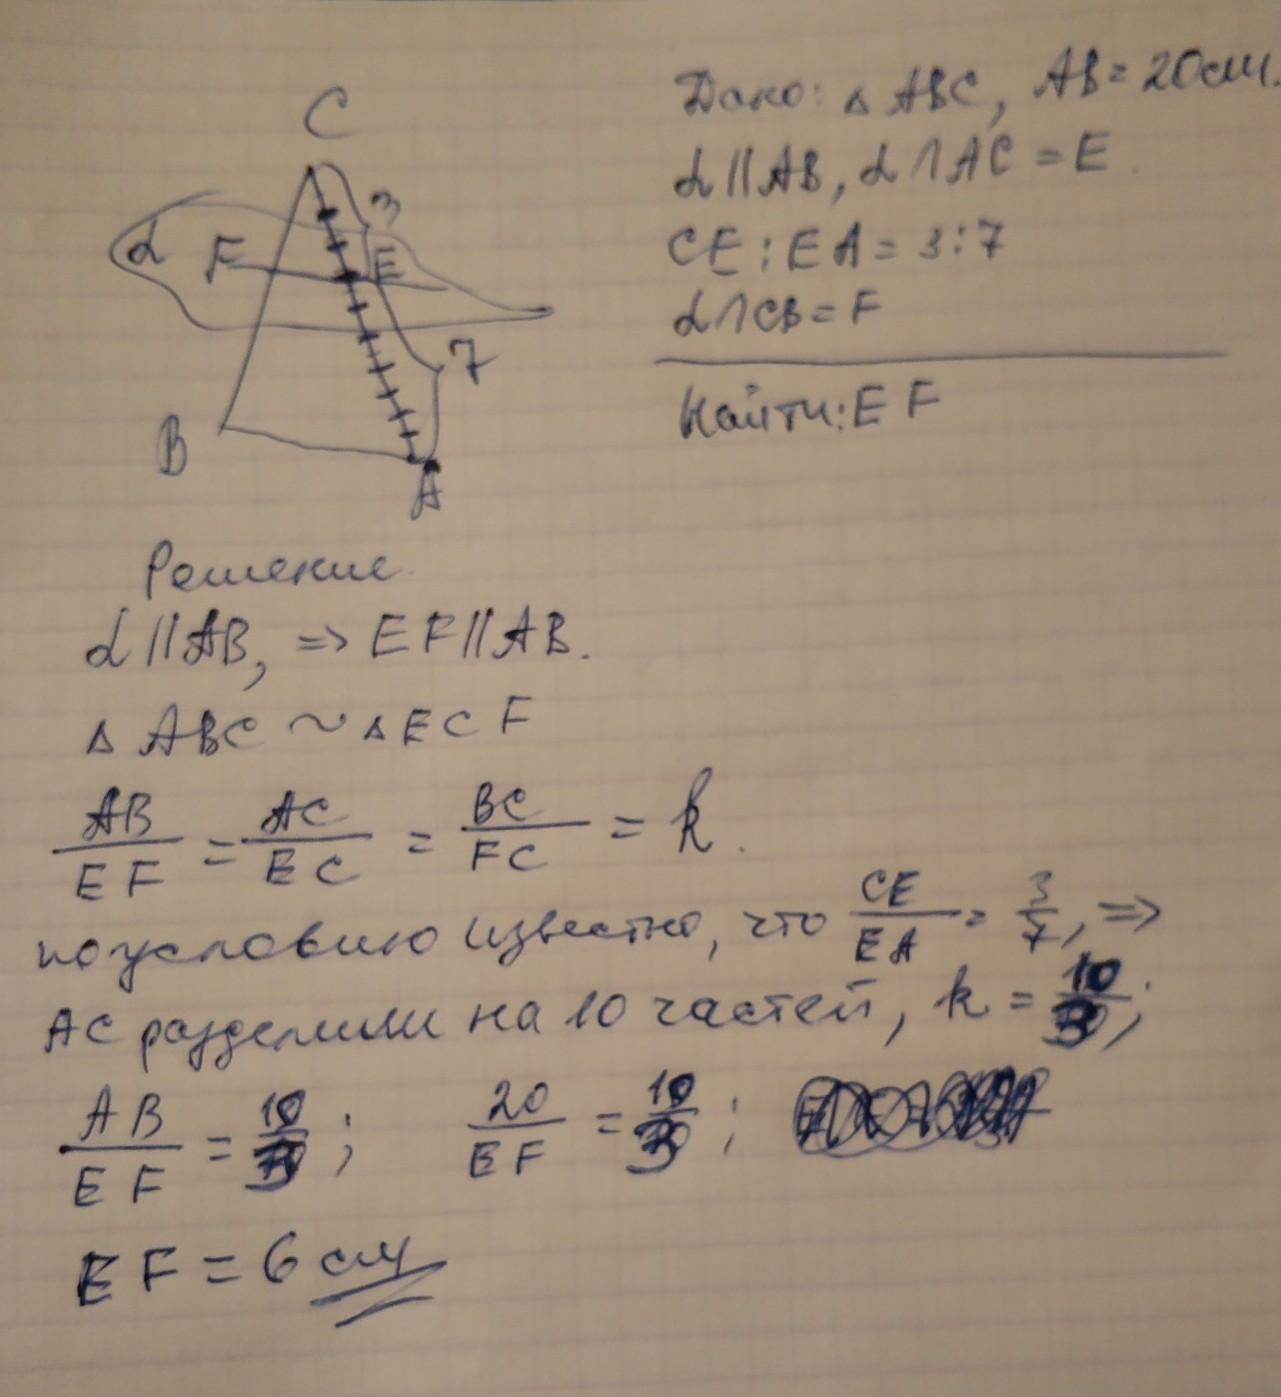 C
3
α
F
E
7
B
A
Дано: △ ABC, AB = 20 см.
α || AB, α ∩ AC = E.
CE : EA = 3 : 7
α ∩ CB = F
Найти: EF
Решение.
α || AB, => EF || AB.
△ ABC ~ △ ECF
AB/EF = AC/EC = BC/FC = k.
по условию известно, что CE/EA = 3/7, =>
AC разделили на 10 частей, k = 10/3;
AB/EF = 10/3; 20/EF = 10/3;
EF = 6 см